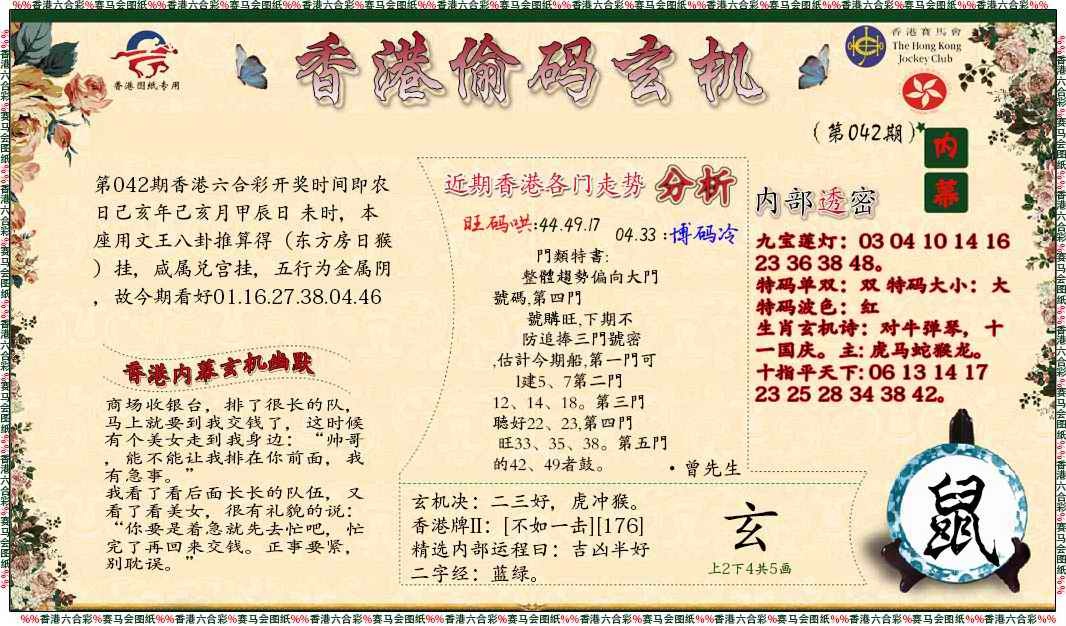 %%香港六合彩%赛马会图纸%%香港六合彩%赛马会图纸%%香港六合彩%赛马会图纸%%香港六合彩%赛马会图纸%%香港六合彩%赛马会图纸%%香港六合彩%赛马会图纸%%香港六合彩%赛马会图纸%%香港六合彩%%
香港图纸专用
香港偷码玄机
香港賽馬會
The Hong Kong
Jockey Club
(第042期)
内幕
第042期香港六合彩开奖时间即农
日己亥年己亥月甲辰日 未时，本
座用文王八卦推算得（东方房日猴
）挂，咸属兑宫挂，五行为金属阴
，故今期看好01.16.27.38.04.46
香港内幕玄机幽默
商场收银台，排了很长的队，
马上就要到我交钱了，这时候
有个美女走到我身边：“帅哥
，能不能让我排在你前面，我
有急事。”
我看了看后面长长的队伍，又
看了看美女，很有礼貌的说：
“你要是着急就先去忙吧，忙
完了再回来交钱。正事要紧，
别耽误。”
近期香港各门走势 分析
旺码哄:44.49.17
04.33 :博码冷
門類特書:
整體趨勢偏向大門
號碼,第四門
號購旺,下期不
防追捧三門號密
,估計今期船,第一門可
1建5、7第二門
12、14、18。第三門
聽好22、23,第四門
旺33、35、38。第五門
的42、49者鼓。
・曾先生
内部透密
九宝莲灯：03 04 10 14 16
23 36 38 48。
特码单双：双 特码大小：大
特码波色：红
生肖玄机诗：对牛弹琴，十
一国庆。主: 虎马蛇猴龙。
十指平天下: 06 13 14 17
23 25 28 34 38 42。
玄机决：二三好，虎冲猴。
香港牌II：[不如一击][176]
精选内部运程曰：吉凶半好
二字经：蓝绿。
玄
上2下4共5画
鼠
%%香港六合彩%赛马会图纸%%香港六合彩%赛马会图纸%%香港六合彩%赛马会图纸%%香港六合彩%赛马会图纸%%香港六合彩%赛马会图纸%%香港六合彩%赛马会图纸%%香港六合彩%赛马会图纸%%香港六合彩%%